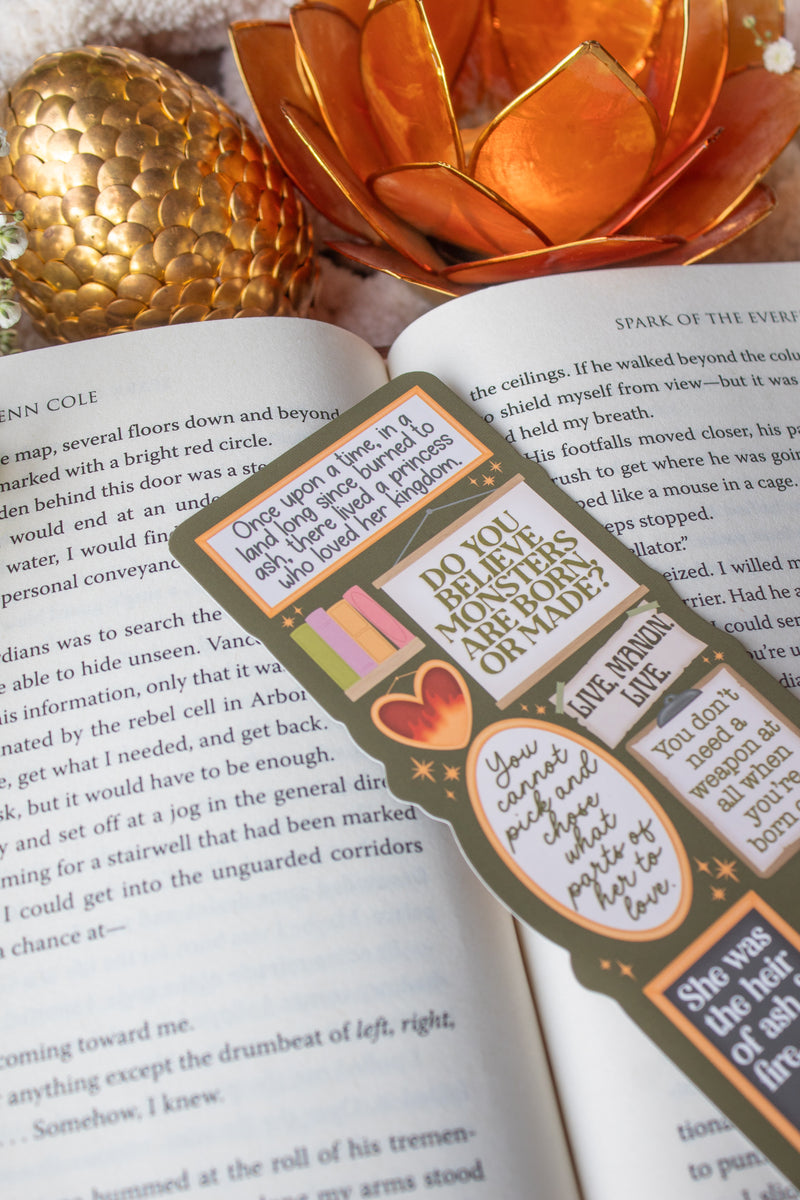 ENN COLE
e map, several floors down and beyond
marked with a bright red circle.
den behind this door was a
would end at an
water, I would
personal
rdians was to search the
e able to hide unseen.
is information, only that it was
nated by the rebel cell in
e, get what I needed, and get back.
sk, but it would have to be enough.
y and set off at a jog in the general
ming for a stairwell that had been marked
I could get into the unguarded corridors
a chance at—
coming toward me.
anything except the drumbeat of left, right,
. . . Somehow, I knew.
hummed at the roll of his tremen-
my arms stood
SPARK OF THE
the ceilings. If he walked beyond the
o shield myself from view—but it was
d held my breath.
His footfalls moved closer, his
rush to get where he was
ped like a mouse in a cage.
eps stopped.
ellator.”
eized. I willed
rrier. Had he
I could
you're
Once upon a time, in a
land long since burned to
ash, there lived a princess
who loved her kingdom.
DO YOU
BELIEVE
MONSTERS
ARE BORN,
OR MADE?
LIVE, MANON.
LIVE.
You don't
need a
weapon at
all when
you're
born
You
cannot
pick and
chose
what
parts of
her to
love.
She was
the heir
of ash
fire
to